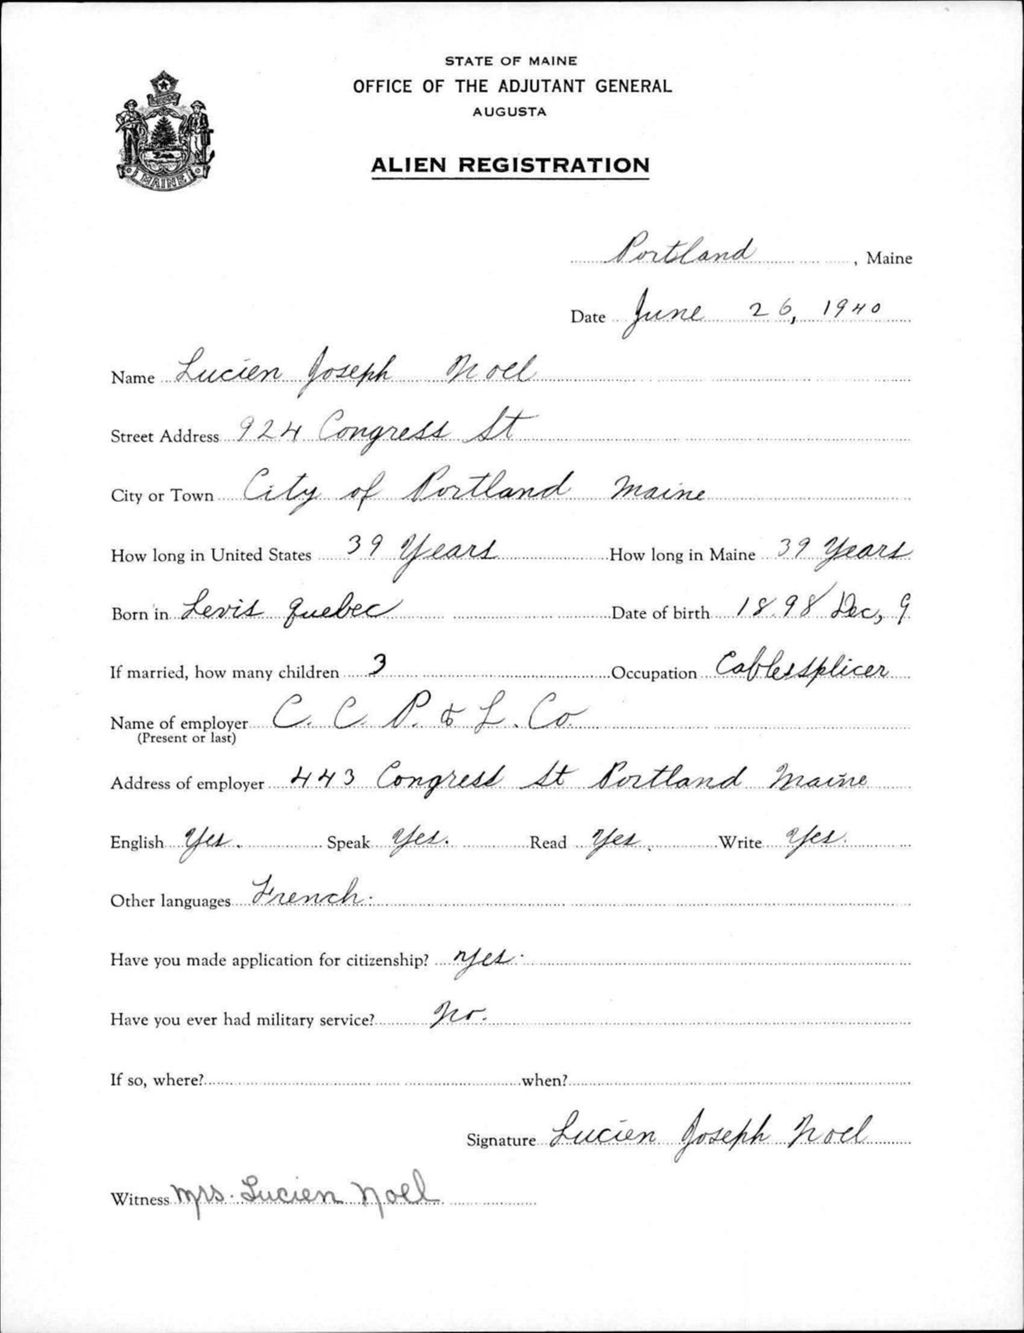 STATE OF MAINE
OFFICE OF THE ADJUTANT GENERAL
AUGUSTA
ALIEN REGISTRATION
MAINE
Portland, Maine
Date June 26, 1940
Name Lucien Joseph Noel
Street Address 924 Congress St
City or Town City of Portland Maine
How long in United States 39 Years How long in Maine 39 Years
Born in Levis Quebec Date of birth 1898 Dec, 9
If married, how many children 3 Occupation Cablessplicer
Name of employer C. C. P. & L. Co
(Present or last)
Address of employer 443 Congress St Portland Maine
English Yes. Speak Yes. Read Yes. Write Yes.
Other languages French.
Have you made application for citizenship? Yes.
Have you ever had military service? No.
If so, where? when?
Signature Lucien Joseph Noel
Witness Mrs. Lucien Noel